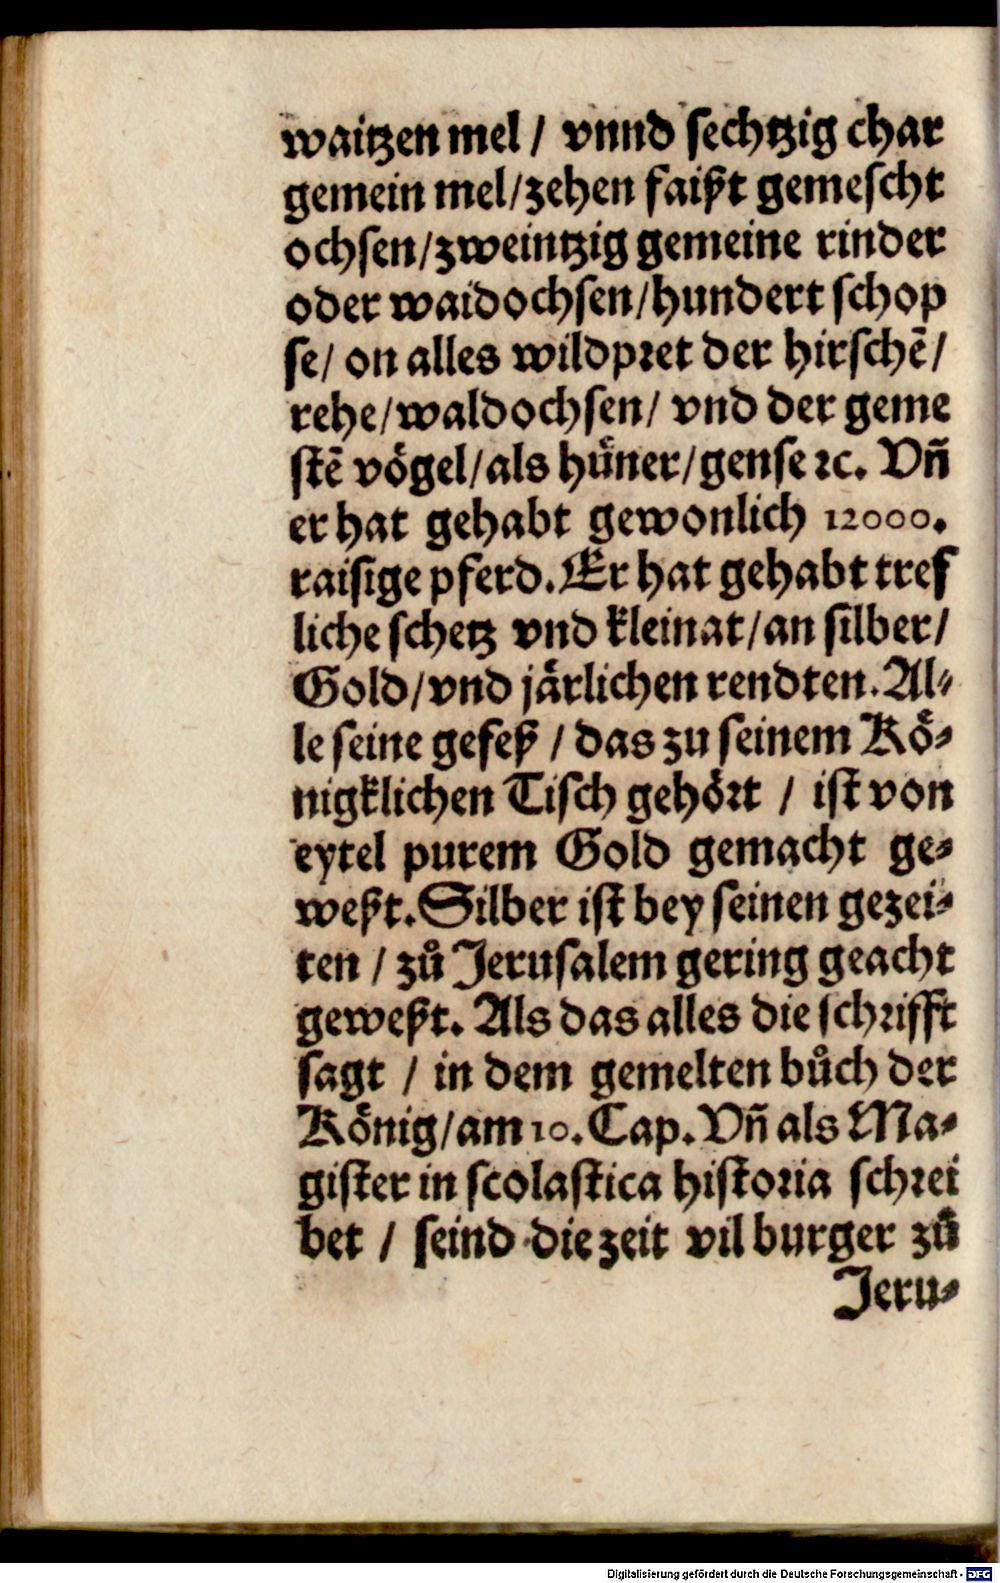 waitzen mel / vnnd sechtzig char
gemein mel/zehen faißt gemescht
ochsen/zweintzig gemeine rinder
oder waidochsen/hundert schop
se/ on alles wildpret der hirschẽ/
rehe/waldochsen/ vnd der geme
stẽ vögel/als hüner/gense ꝛc. Vñ
er hat gehabt gewonlich 12000.
raisige pferd. Er hat gehabt tref
liche schetz vnd kleinat/an silber/
Gold/vnd järlichen rendten. Al⸗
le seine gefeß / das zu seinem Kö⸗
nigklichen Tisch gehört / ist von
eytel purem Gold gemacht ge⸗
weßt. Silber ist bey seinen gezei⸗
ten / zů Jerusalem gering geacht
geweßt. Als das alles die schrifft
sagt / in dem gemelten bůch der
König/am 10. Cap. Vñ als Ma⸗
gister in scolastica historia schrei
bet / seind die zeit vil burger zů
Jeru⸗
Digitalisierung gefördert durch die Deutsche Forschungsgemeinschaft - DFG